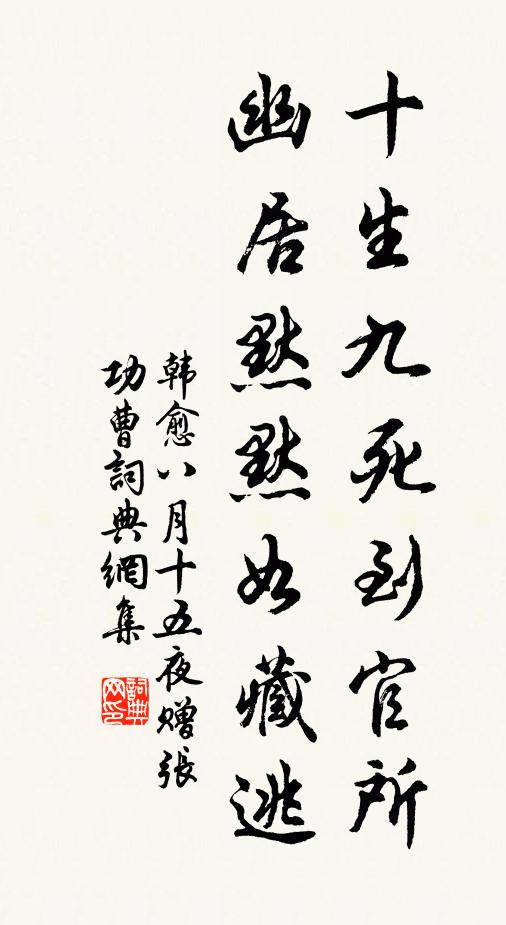 十生九死到官所
幽居默默如藏逃
韓愈八月十五夜贈張
功曹詞典網集
詞典
网印